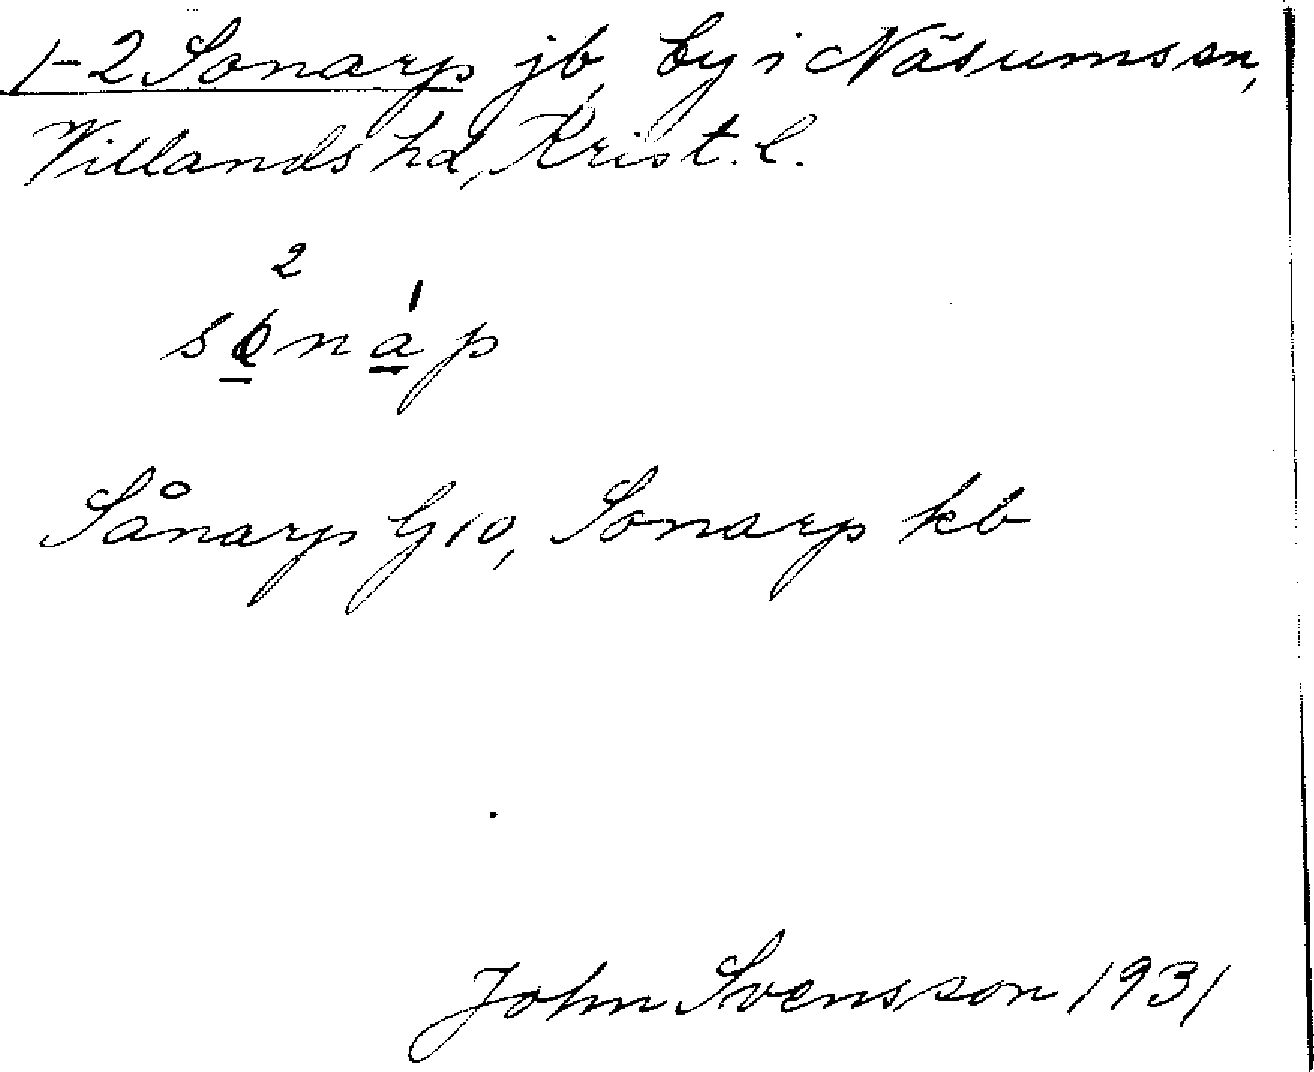 1-2 Sonarp jb, by i Näsums sn,
Villands hd, Krist. l.
2 1
nap
Sånarp G10, Sonarp kb
John Svensson 1931